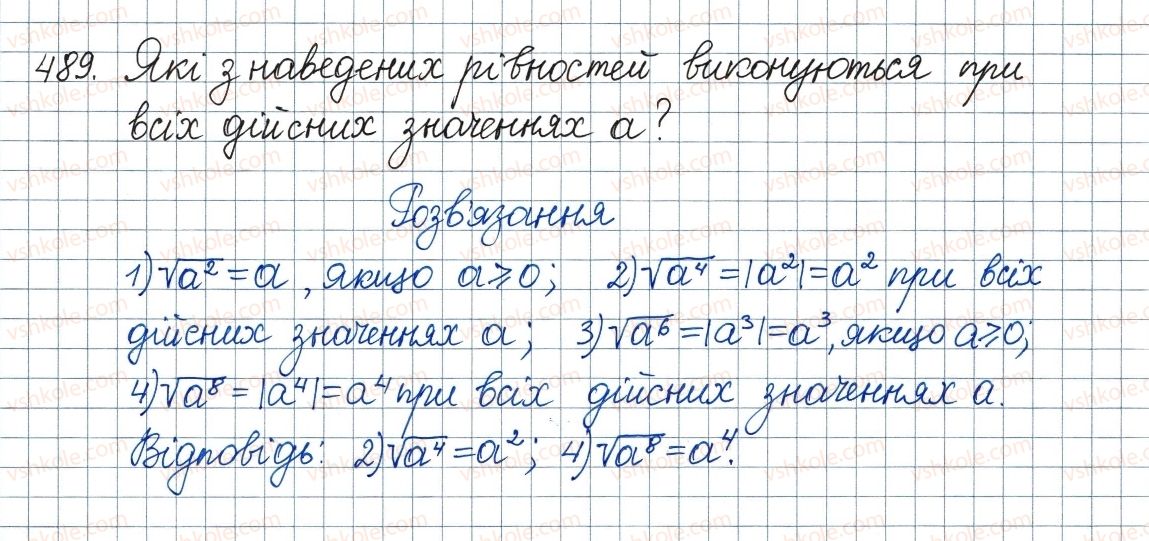 489. Які з наведених рівностей виконуються при
всіх дійсних значеннях a?
Розв'язання
1) √a² = a, якщо a ⩾ 0; 2) √a⁴ = |a²| = a² при всіх
дійсних значеннях a; 3) √a⁶ = |a³| = a³, якщо a ⩾ 0;
4) √a⁸ = |a⁴| = a⁴ при всіх дійсних значеннях a.
Відповідь: 2) √a⁴ = a²; 4) √a⁸ = a⁴.
vshkole.com